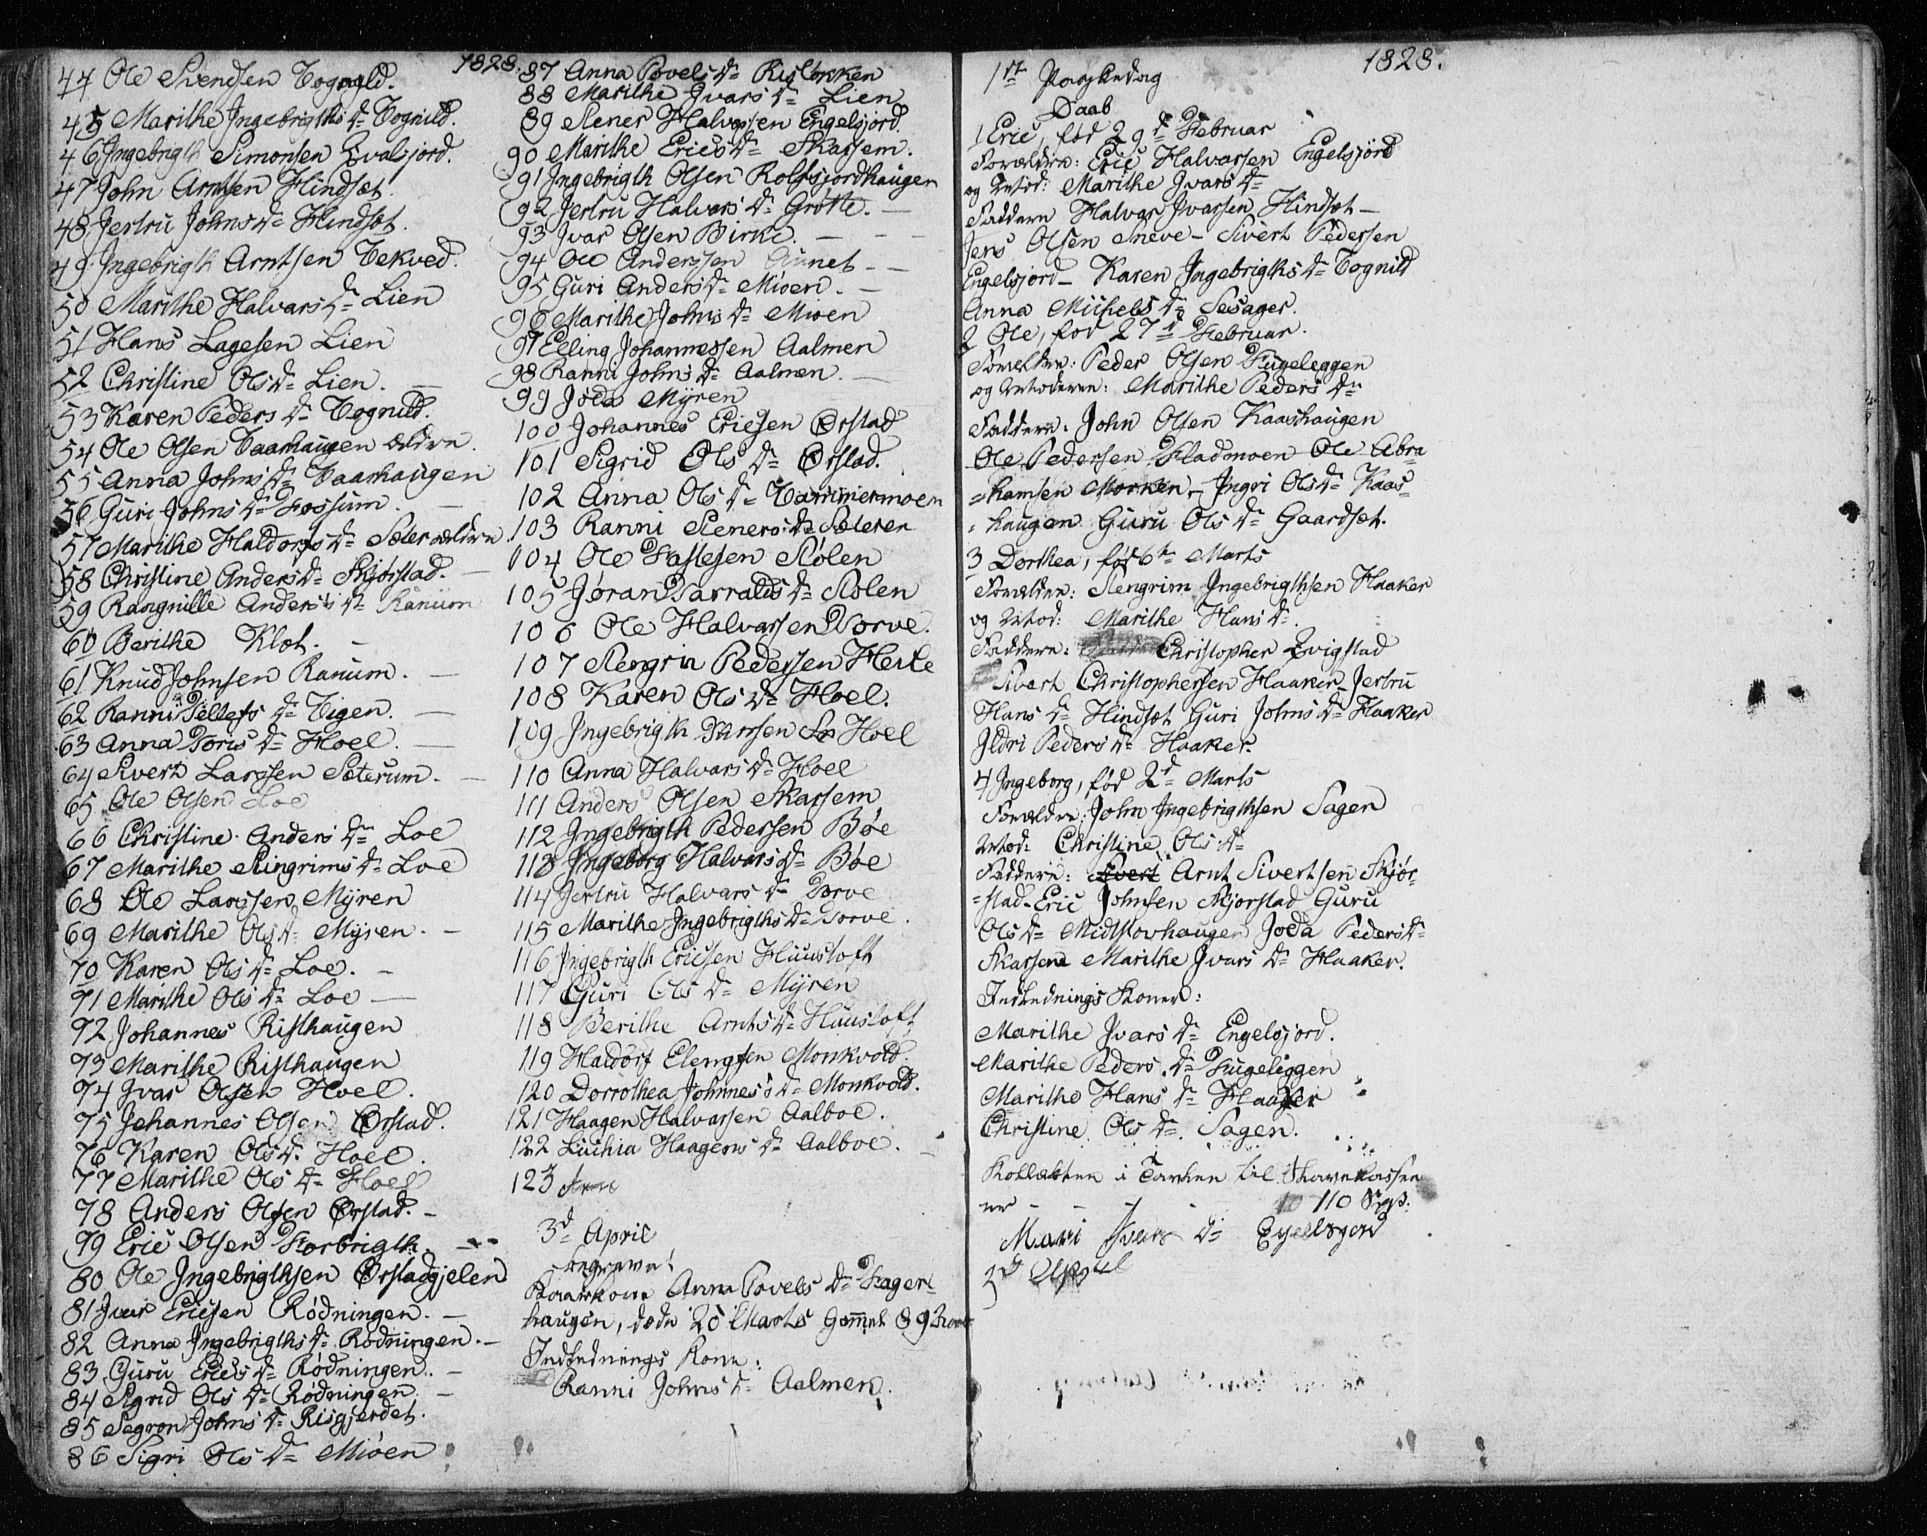 1828.
44 Ole Svendsen Tognild.
45 Marithe Ingebrigths Dr Tognild.
46 Ingebrigth Simonsen Hvalsjord.
47 John Arntsen Hindsæt.
48 Jertru Johns Dr Hindsæt.
49 Ingebrigth Arntsen Vekved.
50 Marithe Halvars Dr Lien
51 Hans Lagesen Lien
52 Christine Ols Dr Lien.
53 Karen Peders Dr Tognild.
54 Ole Olsen Vaarhaugen ældre
55 Anna Johns Dr Vaarhaugen
56 Guri Johns Dr Fossum.
57 Marithe Haldors Dr Sæter ældre
58 Christine Anders Dr Skjørstad.
59 Rangnille Anders Dr Ranum
60 Berithe Klæt.
61 Knud Johnsen Ranum.
62 Ranni Tellefs Dr Vigen.
63 Anna Tores Dr Hoel.
64 Sivert Larssen Sæterum.
65 Ole Olsen Loe
66 Christine Anders Dr Loe
67 Marithe Stingrims Dr Loe
68 Ole Larssen Myren
69 Marithe Ols Dr Myren.
70 Karen Ols Dr Loe.
71 Marithe Ols Dr Loe
72 Johannes Risthaugen
73 Marithe Risthaugen
74 Ivar Olsen Hoel.
75 Johannes Olsen Ørstad.
76 Karen Ols Dr Hoel.
77 Marithe Ols Dr Hoel
78 Anders Olsen Ørstad.
79 Eric Olsen Forbrigth.
80 Ole Ingebrigthsen Ørstadgjelen
81 Ivar Ericsen Rødningen.
82 Anna Ingebrigths Dr Rødningen.
83 Guru Erics Dr Rødningen.
84 Sigrid Ols Dr Rødningen
85 Segron Johns Dr Risgjerdet.
86 Sigri Ols Dr Mioen
87 Anna Povels Dr Ristbrkken
88 Marithe Ivars Dr Lien
89 Stener Halvorsen Engelsjord.
90 Marithe Erics Dr Skarsem.
91 Ingebrigth Olsen Rolfsjordhaugen
92 Jertru Halvars Dr Grøtte.
93 Ivar Olsen Birke.
94 Ole Anderssen Aunet
95 Guri Anders Dr Mioen.
96 Marithe Johns Dr Mioen
97 Elling Johannessen Aalmen
98 Ranni Johns Dr Aalmen.
99 Joda Myren
100 Johannes Ericsen Ørstad
101 Sigrid Ols Dr Ørstad.
102 Anna Ols Dr Tømmermoen
103 Ranni Steners Dr Sæteren
104 Ole Taslesen Stølen
105 Jøran Tarralds Dr Stølen
106 Ole Halvarsen Torve.
107 Stengrin Pedersen Herte
108 Karen Ols Dr Hoel.
109 Ingebrigth Hoel
110 Anna Halvars Dr Hoel
111 Anders Olsen Skarsem
112 Ingebrigth Pedersen Bøe
113 Ingeborg Halvars Dr Bøe
114 Jertru Halvars Dr Torve
115 Marithe Ingebrigths Dr Torve.
116 Ingebrigth Ericsen Huusloft
117 Guri Ols Dr Myren
118 Berithe Arnts Dr Huusloft
119 Haldorf Elengsen Monkvold.
120 Dorrothea Johnes's Dr Monkvold.
121 Haagen Halvarsen Aalboe.
122 Luchia Haagens Dr Aalboe.
123
3d April
begravet
Kaarkone Anna Povels Dr Hager-
haugen, døde 20 Marts Gammel 89
Indlednings Kone:
Ranni Johns Dr Aalmen.
1828.
1ste Paaskedag
Daab
1 Eric, fød 29de Februar
Forældre: Eric Halvarsen Engelsjord
og Mod: Marithe Ivars Dr
Faddere Halvar Ivarsen Hindsæt
Jens Olsen Sneve - Sivert Pedersen
Engelsjord - Karen Ingebrigths Dr Tognild
Anna Michels Dr Sesager.
2 Ole, fød 27de Februar.
Forældre: Peder Olsen Fugeleggen
og Moderen: Marithe Peders Dr
Faddere: John Olsen Kaashaugen
Ole Pedersen Fladmoen Ole Abra
=hamsen Morken - Ingri Ols Dr Kaas-
-haugen Guru Ols Dr Gaardsæt.
3 Dorthea, fød 6te Marts
Forældre: Stengrim Ingebrigthsen Haaker
og Mod: Marithe Hans Dr.
Faddere: Christopher Qvigstad
Sivert Christophersen Haaker - Jertru
Hans Dr Hindsæt Guri Johns Dr Haaker
Ildri Peders Dr Haaker.
4 Ingeborg, fød 2d Marts
Forældre: John Ingebrigthsen Sagen
Mod: Christine Ols Dr
Faddere: Sivert Arnt Sivertsen Skjør-
=stad - Eric Johnsen Skjorstad Guru
Ols Dr Midtskovhaugen Joda Peders Dr
Skarsem Marithe Ivars Dr Haaker.
Indlednings Koner:
Marithe Ivars Dr Engelsjord.
Marithe Peders Dr Fugeleggen
Marithe Hans Dr Haaker
Christine Ols Dr Sagen.
Kollekten i Tavlen til
er - - - 110 Sk:
Mari Ivars Dr
2d April